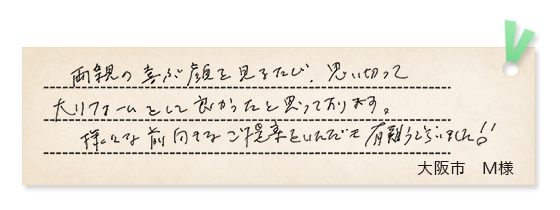 両親の喜ぶ顔を見るたび、思い切って
大リフォームをして良かったと思っております。
様々な前向きなご提案をいただき有難うございました!!
大阪市　M様